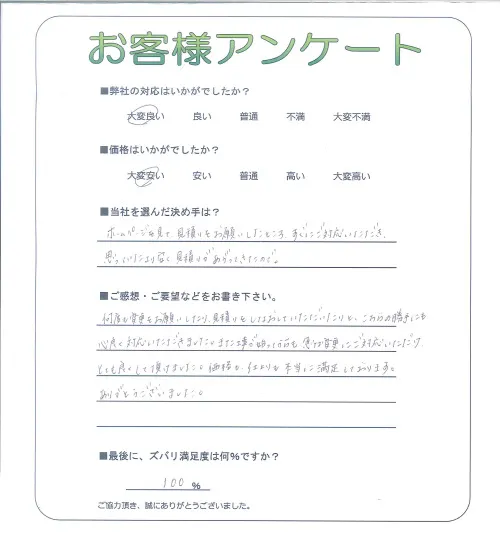 お客様アンケート
■弊社の対応はいかがでしたか？
大変良い 良い 普通 不満 大変不満
■価格はいかがでしたか？
大変安い 安い 普通 高い 大変高い
■当社を選んだ決め手は？
ホームページを見て見積りをお願いしたところ、すぐにご対応いただき、
思っていたより安く見積りがあがってきたので。
■ご感想・ご要望などをお書き下さい。
何度も変更をお願いしたり、見積りをしなおしていただいたりと、こちらの勝手にも
心良く対応いただきました。また工事が始まってからも 変更にご対応いただけ、
とても良くして頂けました。価格も、仕上りも本当に満足しております。
ありがとうございました。
■最後に、ズバリ満足度は何％ですか？
100 ％
ご協力頂き、誠にありがとうございました。